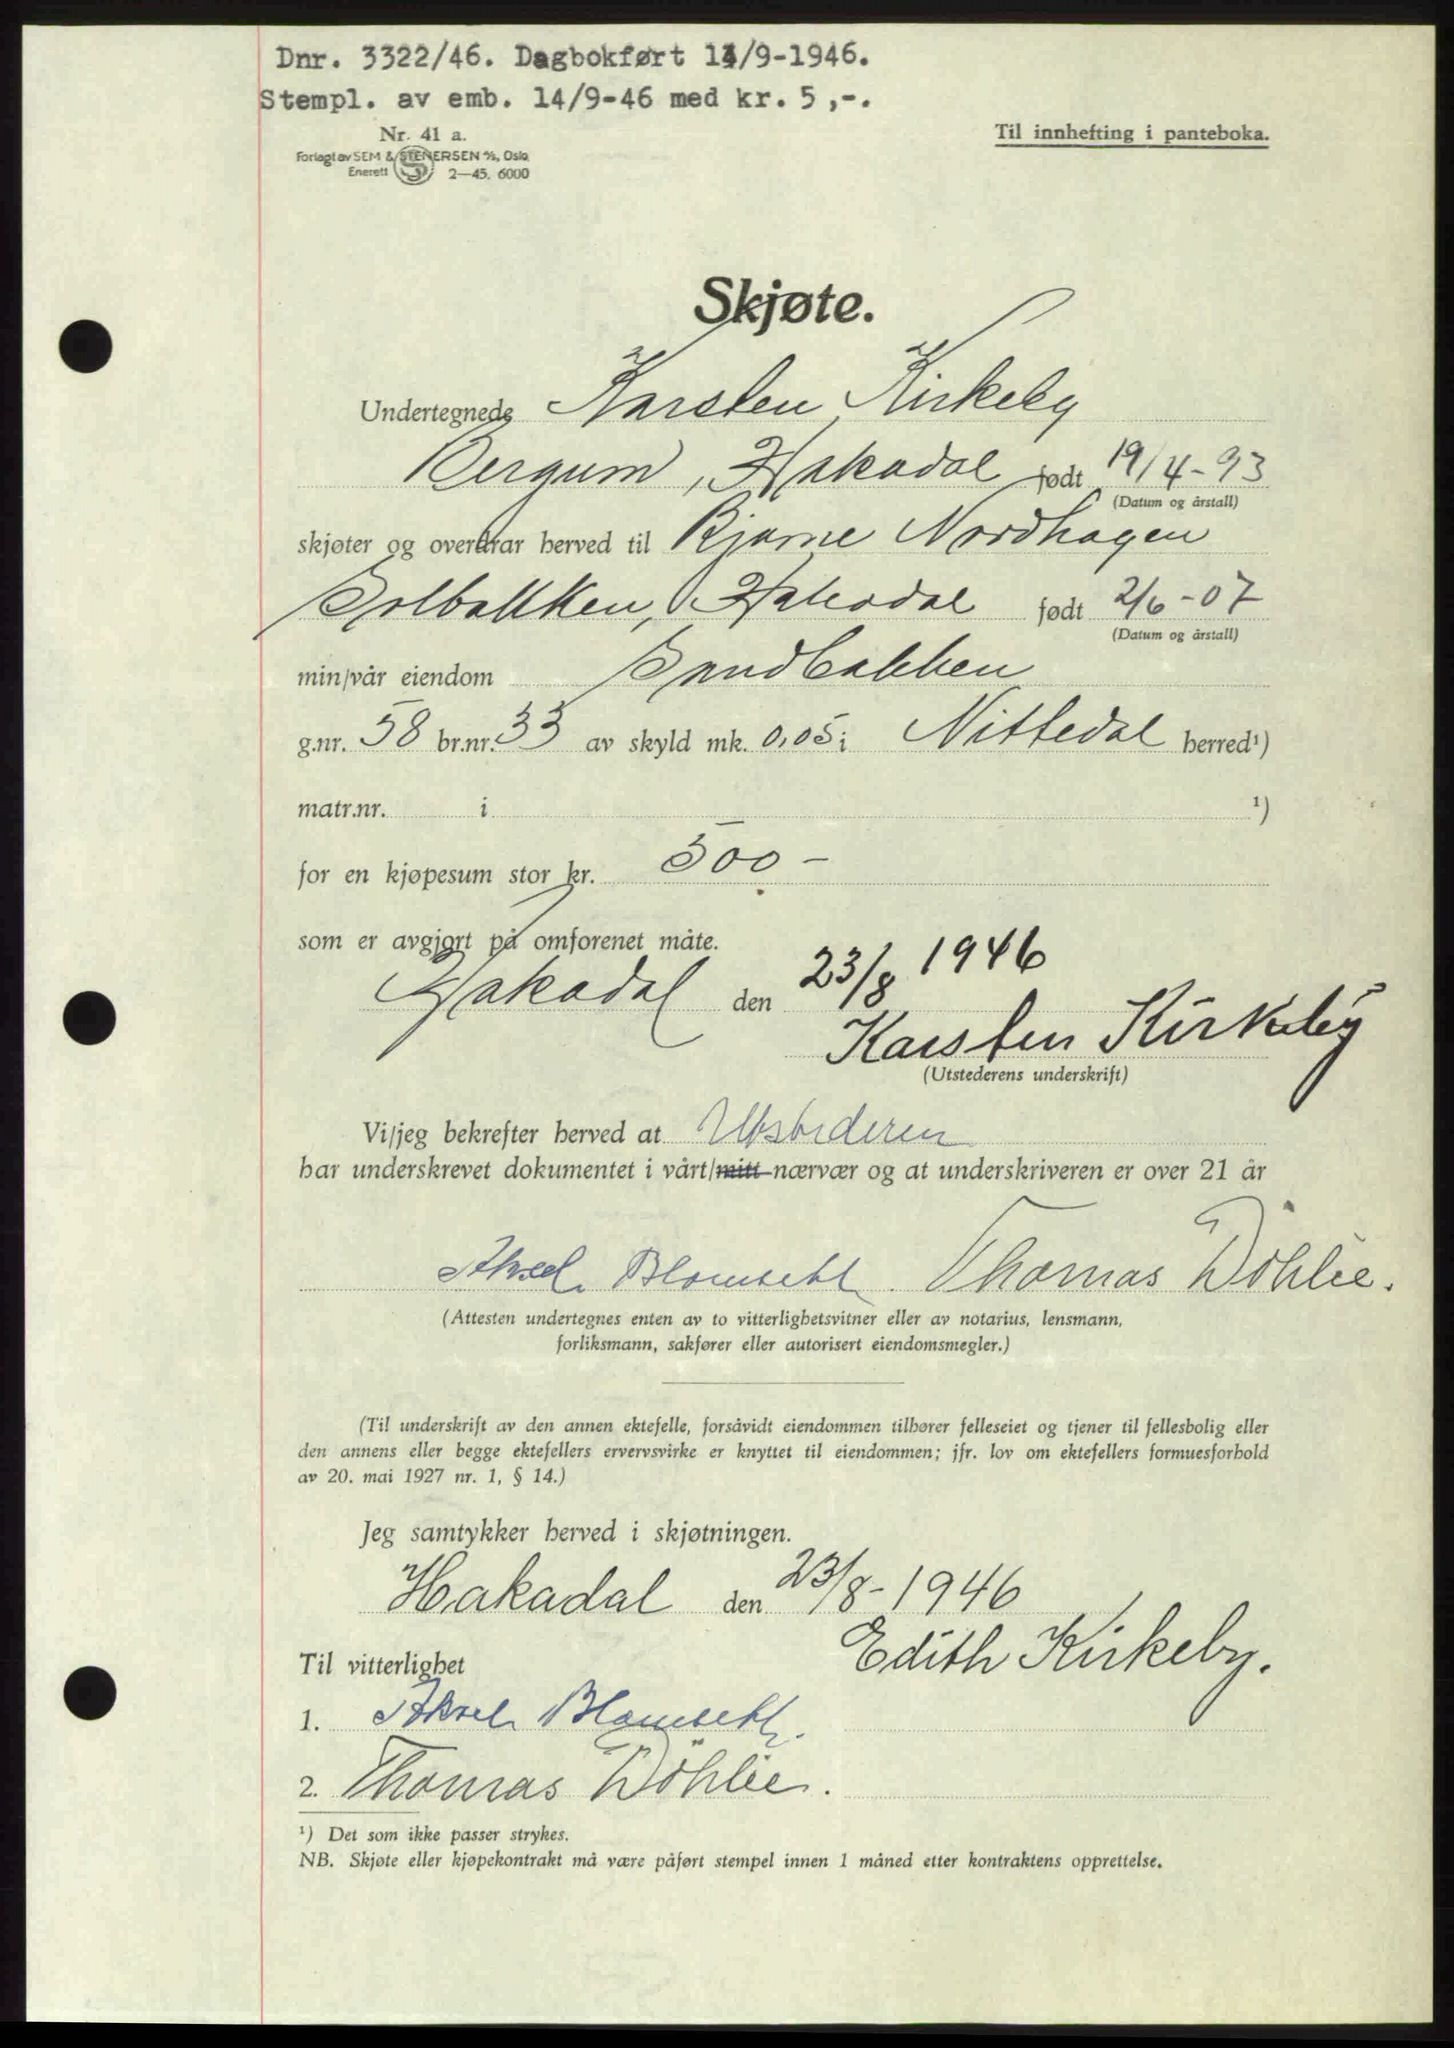 Dnr. 3322/46. Dagbokført 14/9-1946.
Stempl. av emb. 14/9-46 med kr. 5,-.
Nr. 41 a.
Forlagt av SEM & STENERSEN A/S, Oslo
Enerett 2—45. 6000
Til innhefting i panteboka.
Skjøte.
Undertegnede Karsten Kirkeby
Bergum, Hakadal født 19/4-93
(Datum og årstall)
skjøter og overdrar herved til Bjarne Nordhagen
Solbakken, Hakadal født 2/6-07
(Datum og årstall)
min/vår eiendom Sandbakken
g.nr. 58 br.nr. 33 av skyld mk. 0,05 i Nittedal herred¹)
matr.nr. i ¹)
for en kjøpesum stor kr. 500 –
som er avgjort på omforenet måte.
Hakadal den 23/8 1946
Karsten Kirkeby
(Utstederens underskrift)
Vi/jeg bekrefter herved at Utstederen
har underskrevet dokumentet i vårt/mitt nærvær og at underskriveren er over 21 år
Aksel Blomsett. Thomas Döhlie.
(Attesten undertegnes enten av to vitterlighetsvitner eller av notarius, lensmann,
forliksmann, sakfører eller autorisert eiendomsmegler.)
(Til underskrift av den annen ektefelle, forsåvidt eiendommen tilhører felleseiet og tjener til fellesbolig eller
den annens eller begge ektefellers ervervsvirke er knyttet til eiendommen; jfr. lov om ektefellers formuesforhold
av 20. mai 1927 nr. 1, § 14.)
Jeg samtykker herved i skjøtningen.
Hakadal den 23/8-1946
Edith Kirkeby.
Til vitterlighet
1. Aksel Blomsett.
2. Thomas Döhlie.
¹) Det som ikke passer strykes.
NB. Skjøte eller kjøpekontrakt må være påført stempel innen 1 måned etter kontraktens opprettelse.